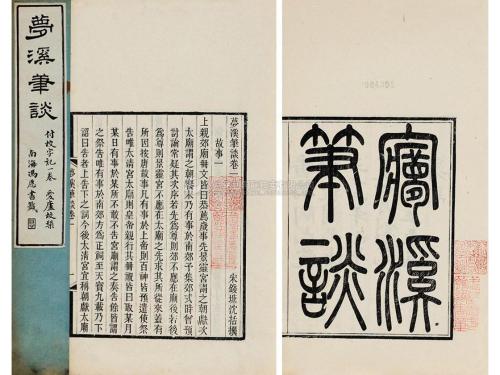 夢溪筆談
付校字記一卷 愛廬校槧
南海馮愿書籤
夢溪筆談卷一
宋錢塘沈括撰
故事一
上親郊廟冊文皆曰恭薦歲事先景靈宮謂之朝獻次
太廟謂之朝饗末乃有事於南郊予集郊式時曾預
討論常疑其次序若先為尊則郊不應在廟後若後
為尊則景靈宮不應在太廟之先求其所從來蓋有
所因按唐故事凡有事於上帝則百神皆預遣使祭
告唯太清宮太廟則皇帝親行其冊祝皆曰取某月
某日有事於某所不敢不告宮廟謂之奏告餘皆謂
之祭告唯有事於南郊方為正祠至天寶九載乃下
詔曰告者上告下之詞今後太清宮宜稱朝獻太廟
㝱溪
筆談